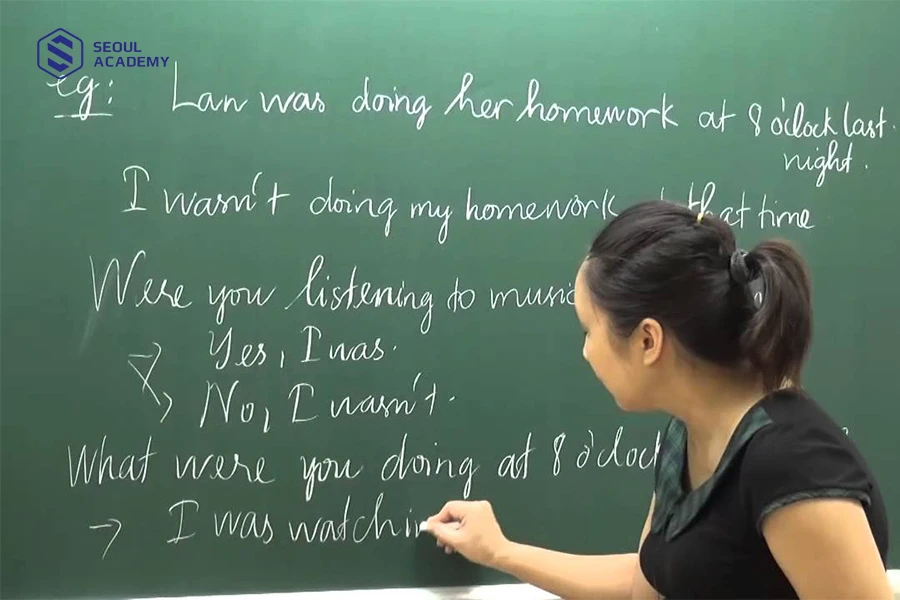 SEOUL
ACADEMY
eg: Lan was doing her homework at 8 o'clock last
night.
I wasn't doing my homework that time
Were you listening to music
Yes, I was.
No, I wasn't.
What were you doing at 8 o'cloc
→ I was watchin